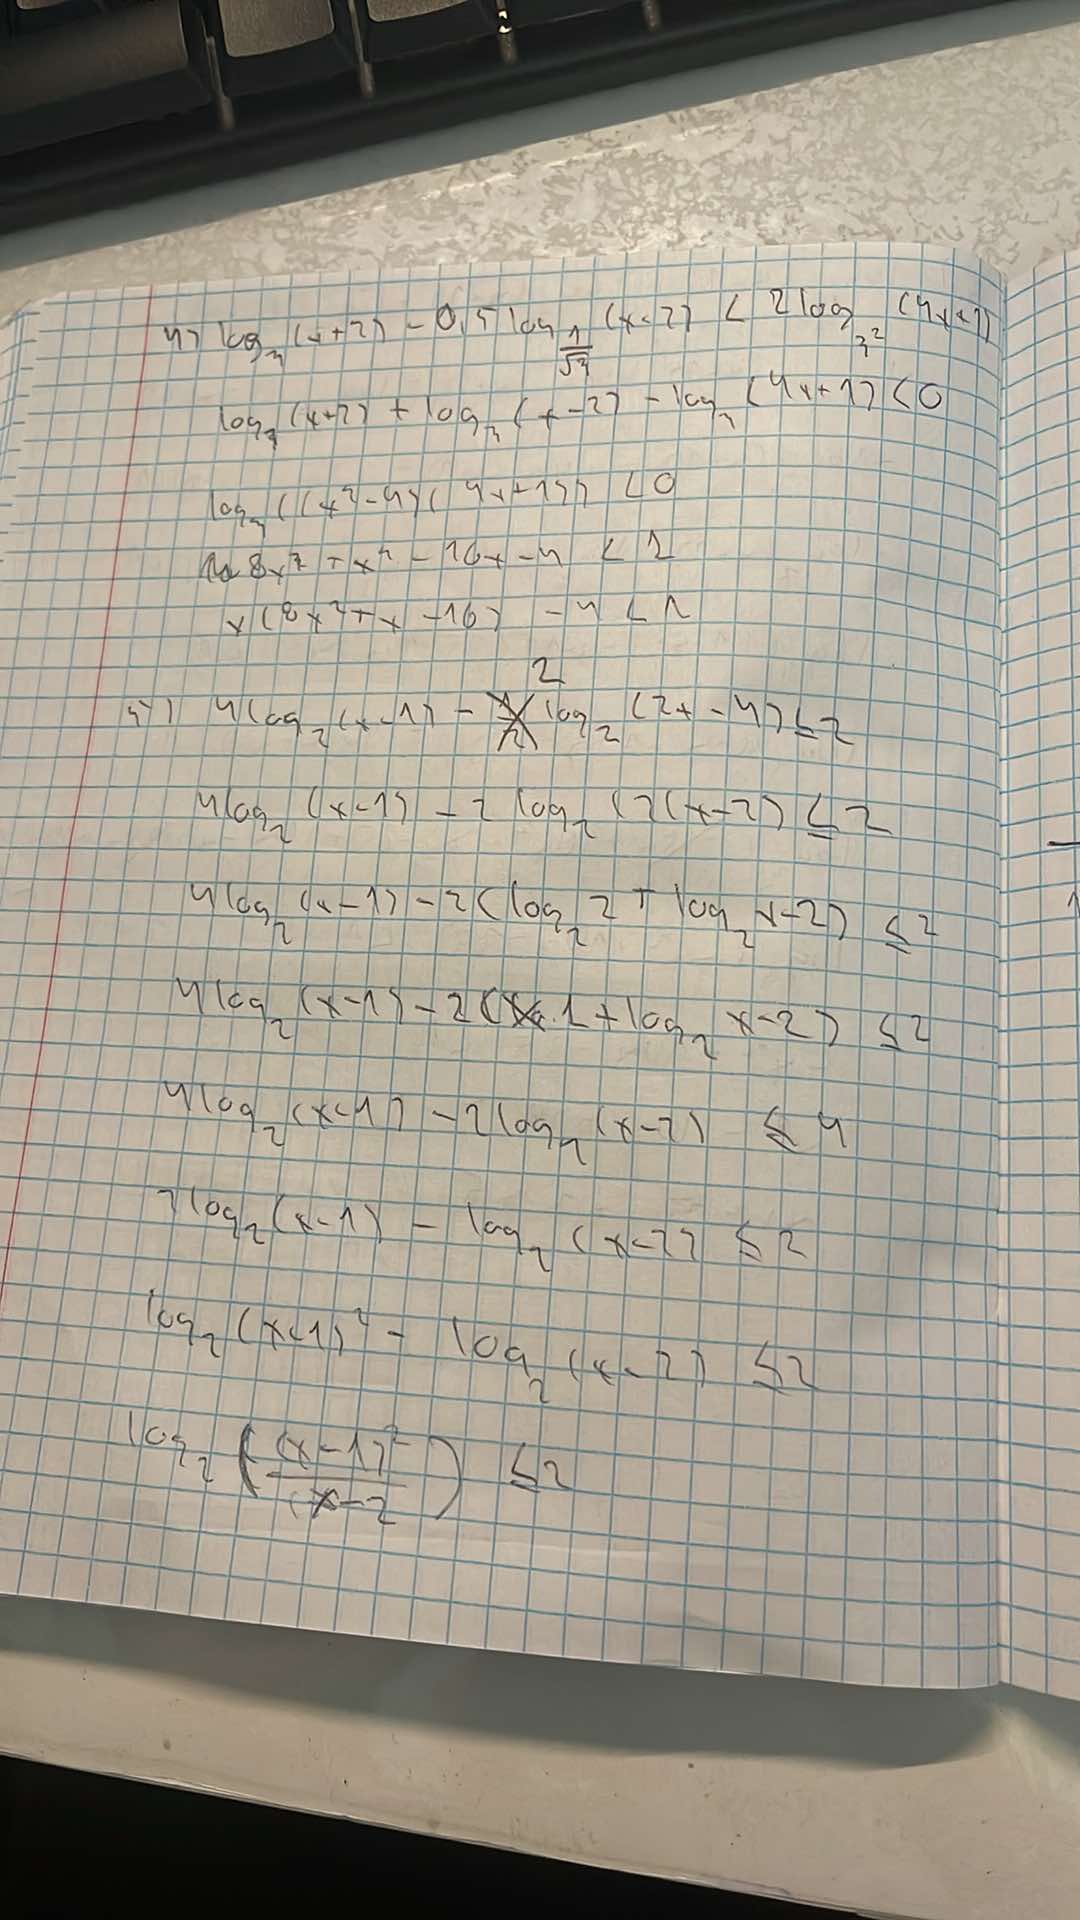 4) log₃ (x+2) - 0,5 log_{1/√3} (x-2) < 2 log_{3²} (4x+1)
log₃ (x+2) + log₃ (x-2) - log₃ (4x+1) < 0
log₃ ((x²-4)(4x+1)) < 0
8x³ + x² - 16x - 4 < 1
x(8x²+x-16) - 4 < 1
2
5) 4log₂ (x-1) - log₂ (2x-4) ≤ 2
4log₂ (x-1) - 2 log₂ (2(x-2) ≤ 2
4log₂ (x-1) - 2(log₂ 2 + log₂ x-2) ≤ 2
4log₂ (x-1) - 2(1 + log₂ x-2) ≤ 2
4log₂ (x-1) - 2log₂ (x-2) ≤ 4
2log₂ (x-1) - log₂ (x-2) ≤ 2
log₂ (x-1)² - log₂ (x-2) ≤ 2
log₂ ((x-1)²/(x-2) ≤ 2